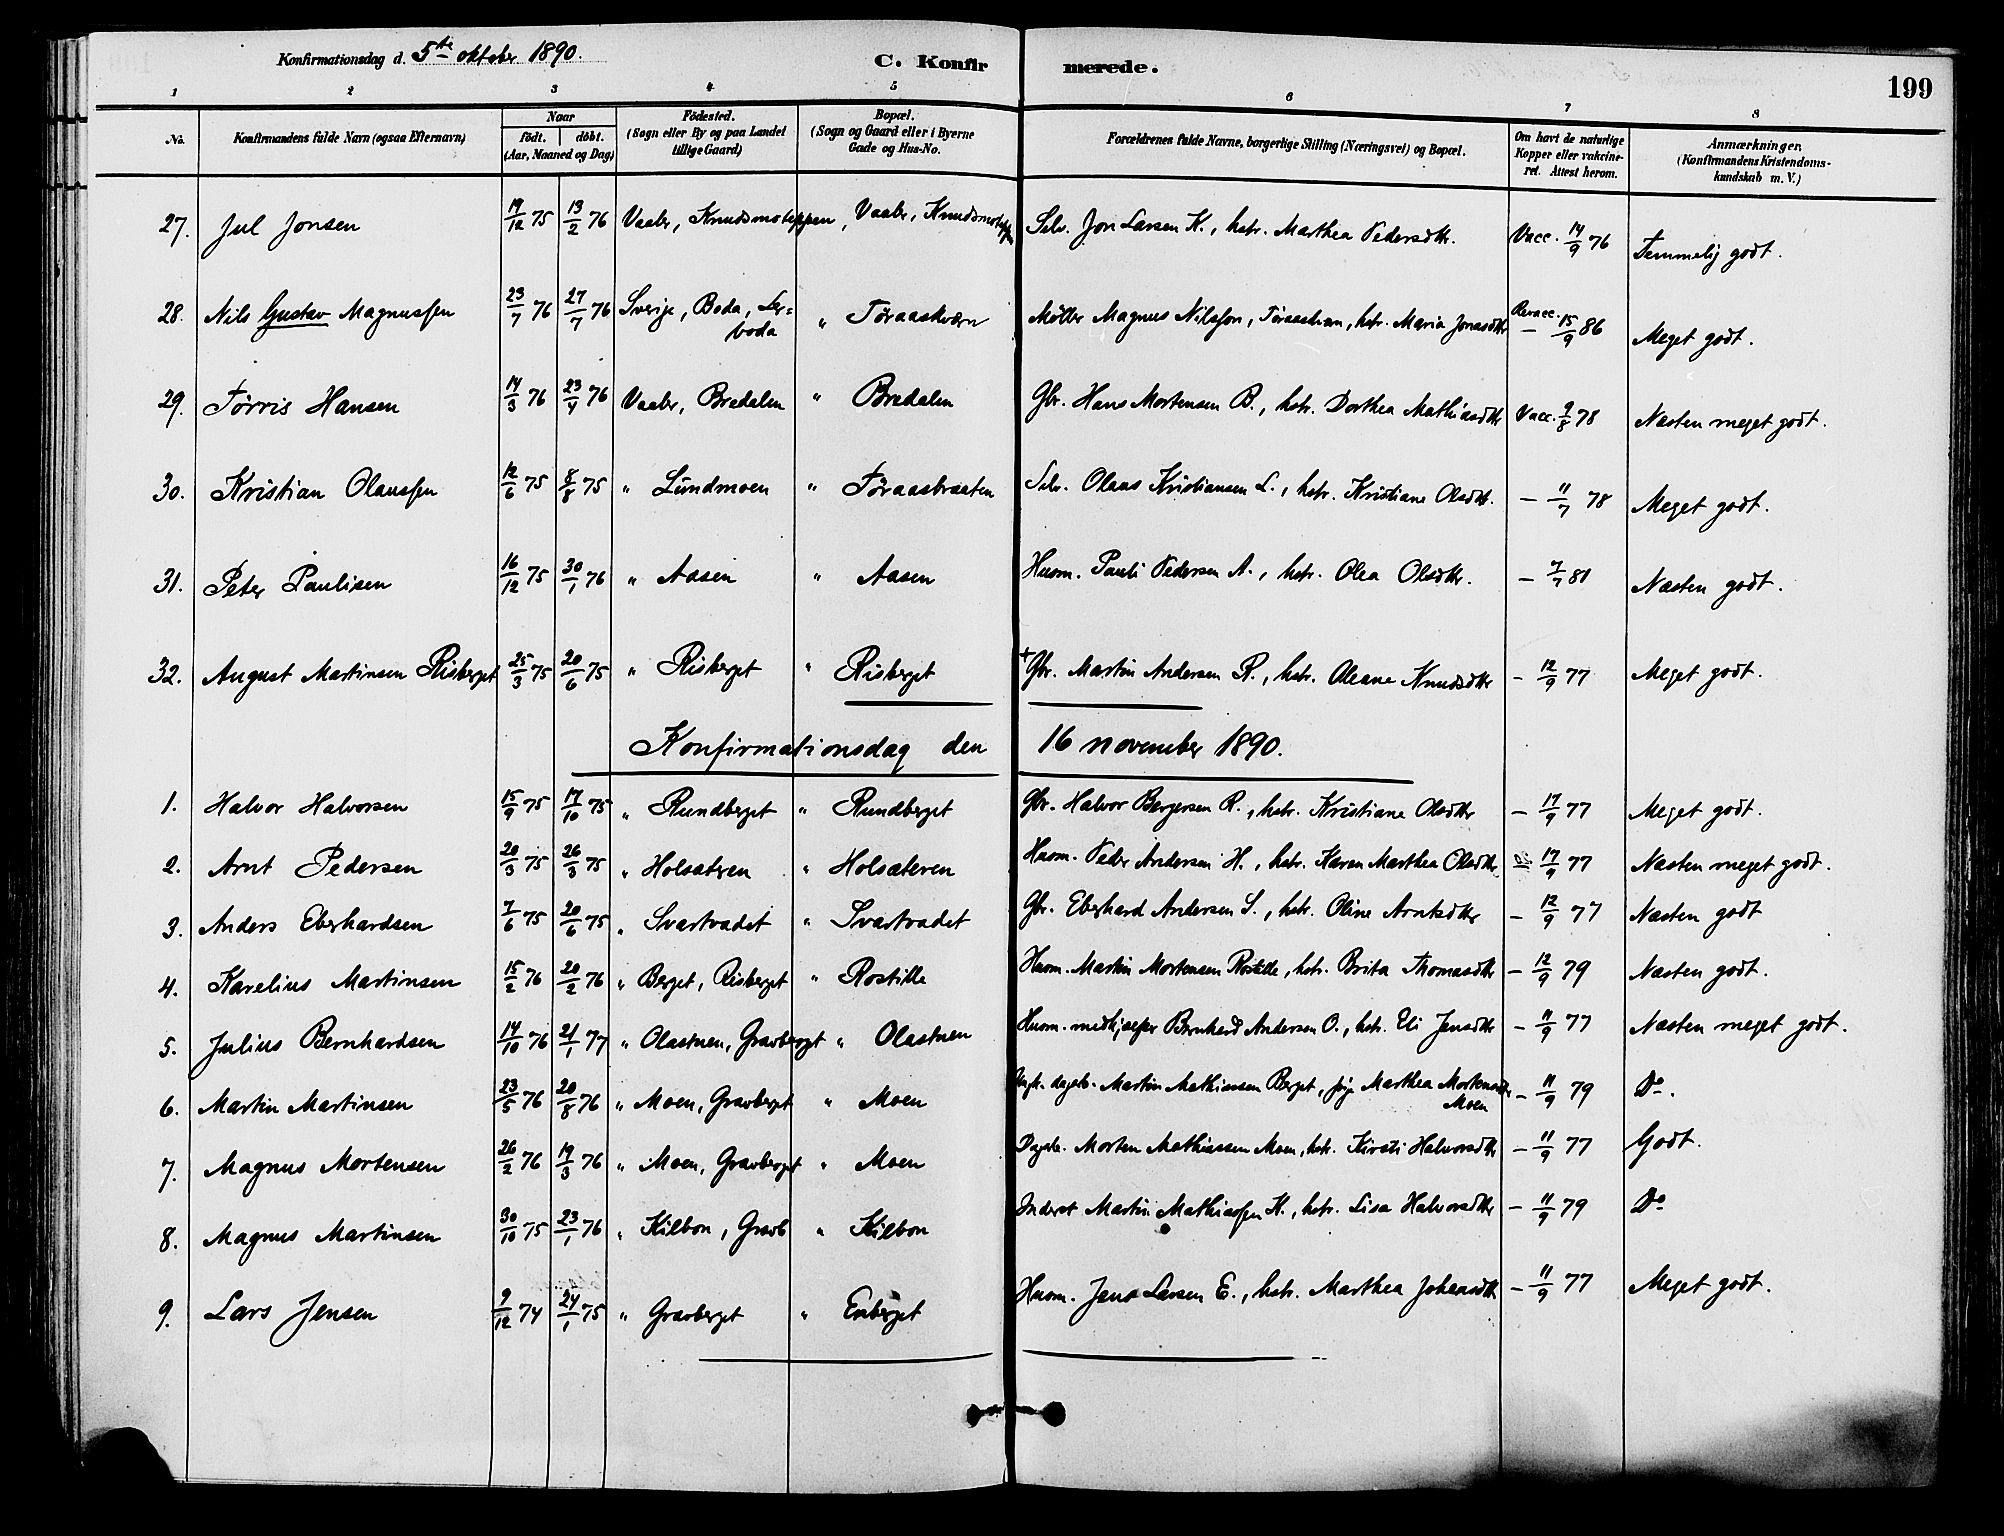 Konfirmationsdag d. 5te oktober 1890. C. Konfirmerede. 199
1 2 3 4 5 6 7 8
No. Konfirmandens fulde Navn (ogsaa Efternavn) Naar födt. döbt. (Aar, Maaned og Dag) Födested. (Sogn eller By og paa Landet tillige Gaard) Bopæl. (Sogn og Gaard eller i Byerne Gade og Hus-No. Forældrenes fulde Navne, borgerlige Stilling (Næringsvei) og Bopæl. Om havt de naturlige Kopper eller vakcineret. Attest herom. Anmærkninger. (Konfirmandens Kristendomskundskab m. V.)
27. Jul Jonsen 19/12 75 13/2 76 Vaaler, Knudsmoteppen, Vaaler, Knudsmotepp Selv. Jon Larsen K., hstr. Marthea Pedersdtr. Vacc. 14/9 76 Temmelig godt.
28. Nils Gustav Magnussen 23/7 76 27/7 76 Sverige, Boda, Ler=boda " Töraaskværn Möller Magnus Nilsson, Töraaskværn, hstr. Maria Jonasdtr Revacc. — 15/9 86 Meget godt.
29. Törris Hansen 14/3 76 23/4 76 Vaaler, Bredalen " Bredalen Gbr. Hans Mortensen B., hstr. Dorthea Mathiasdtr Vacc. 9/8 78 Næsten meget godt.
30. Kristian Olaussen 12/6 75 8/8 75 " Lundmoen " Töraasbraaten Selv. Olaus Kristiansen L., hstr. Kristiane Olsdtr. — 11/7 78 Meget godt.
31. Peter Paulisen 16/12 75 30/1 76 " Aasen " Aasen Husm. Pauli Pedersen A., hstr. Olea Olsdtr. — 7/7 81 Næsten godt.
32. August Martinsen Risberget 25/3 75 20/6 75 " Risberget " Risberget + Gbr. Martin Andersen R., hstr. Oleane Knudsdtr — 12/9 77 Meget godt.
Konfirmationsdag den 16 november 1890.
1. Halvor Halvorsen 15/9 75 17/10 75 " Rundberget " Rundberget Gbr. Halvor Bergersen R., hstr. Kristiane Olsdtr — 17/9 77 Meget godt.
2. Arnt Pedersen 20/3 75 26/3 75 " Holsæteren " Holsæteren Husm. Peder Andersen H., hstr. Karen Marthea Olsdtr — 17/9 77 Næsten meget godt.
3. Anders Eberhardsen 7/6 75 20/6 75 " Svartvadet " Svartvadet Gbr. Eberhard Andersen S., hstr. Oline Arntsdtr — 12/9 77 Næsten godt
4. Karelius Martinsen 15/2 76 20/2 76 " Berget, Risberget " Rostille Husm. Martin Mortensen Rostille, hstr. Brita Thomasdtr — 12/9 79 Næsten godt.
5. Julius Bernhardsen 14/10 76 21/1 77 " Olastuen, Gravberget " Olastuen Husm. medhjælper Bernhard Andersen O., hstr. Eli Jensdtr — 11/9 77 Næsten meget godt.
6. Martin Martinsen 23/5 76 20/8 76 " Moen, Gravberget " Moen Ungk. dagarb. Martin Mathiassen Berget, pige Marthea Mortensdtr Moen — 11/9 79 Do.
7. Magnus Mortensen 26/2 76 19/3 76 " Moen, Gravberget " Moen Dagarb. Morten Mathiassen Moen, hstr. Kirsti Halvorsdtr — 11/9 77 Godt.
8. Magnus Martinsen 30/10 75 23/1 76 " Kilbon, Gravb " Kilbon Inderst Martin Mathiassen K., hstr. Lisa Halvorsdtr — 11/9 79 Do
9. Lars Jensen 9/12 74 24/1 75 " Gravberget " Enberget Husm. Jens Larsen E., hstr. Marthea Johansdtr — 11/9 77 Meget godt.